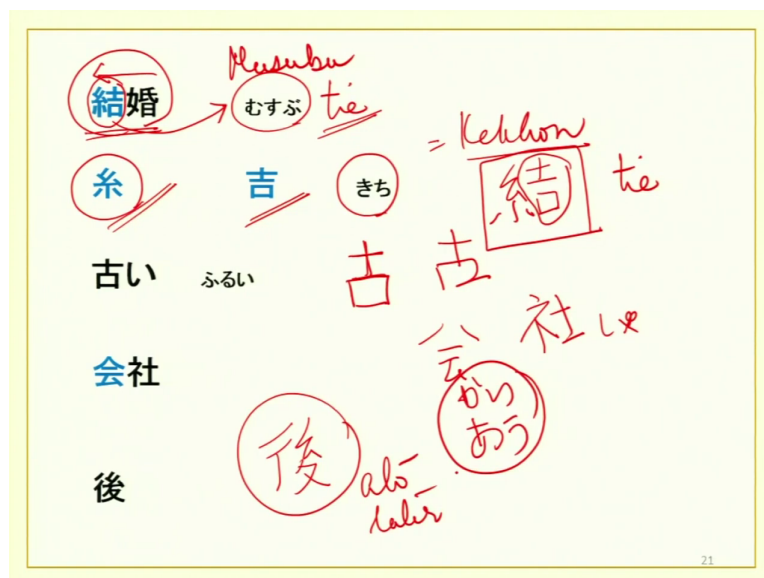 Musubu
結婚 むすぶ tie
= Kekkon
糸 吉 きち 結 tie
古い ふるい 古 古
会 社 しゃ
会社
かい
あう
後 ato
後 later
21